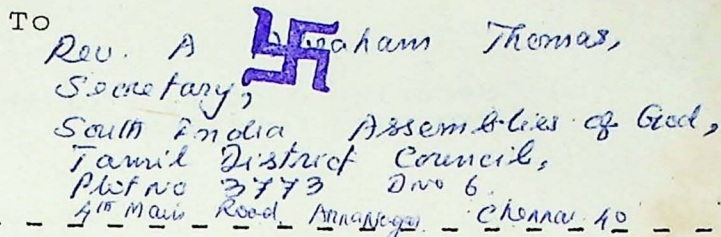 To
Rev. A Abraham Thomas,
Secretary,
South India Assemblies of God,
Tamil District Council,
Plot No 3773 D no 6
4th Main Road. AnnaNagar Chennai 40